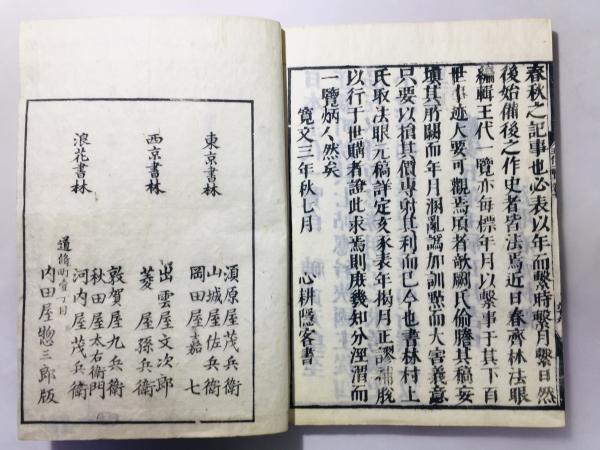 春秋之記事也必表以年而繫時繫月繫日然
後始備後之作史者皆法焉近日春齊林法眼
編輯王代一覽亦每標年月以繫事于其下百
世事迹大要可觀焉頃者敵闕氏偷謄其稿妄
填其所闕而年月溷亂譌加訓㸃而大害義意
只要以搶其價專射其利而已今也書林村上
氏取法眼元稿詳定亥豕表年揭月正謬補脫
以行于世購者證此求焉則庶幾知分涇渭而
一覽炳人然矣
寬文三年秋七月 心耕隱客書
東京書林
須原屋茂兵衛
山城屋佐兵衛
岡田屋嘉七
西京書林
出雲屋文次郎
菱屋孫兵衛
浪花書林
敦賀屋九兵衛
秋田屋太右衛門
河内屋茂兵衛
內田屋惣三郎版